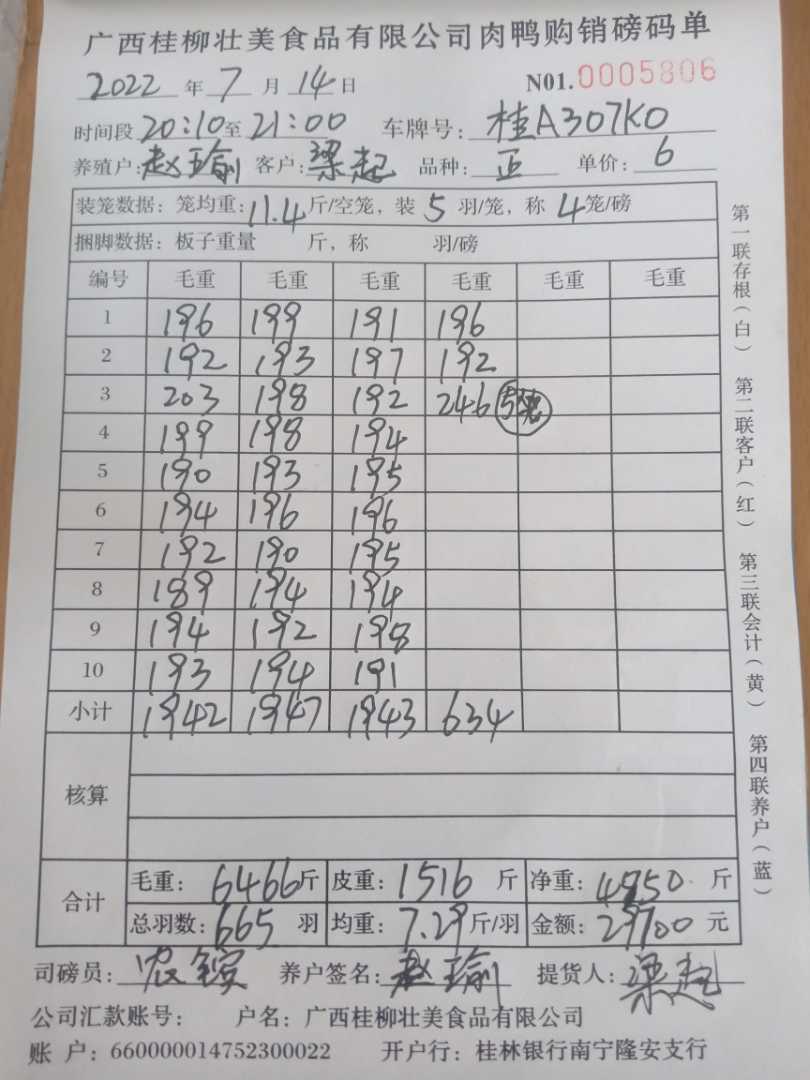 广西桂柳壮美食品有限公司肉鸭购销磅码单
2022 年 7 月 14 日 N01.0005806
时间段 20:10 至 21:00 车牌号: 桂A307K0
养殖户: 赵瑜 客户: 梁起 品种: 正 单价: 6
装笼数据: 笼均重: 11.4 斤/空笼, 装 5 羽/笼, 称 4 笼/磅
捆脚数据: 板子重量 斤, 称 羽/磅
编号 毛重 毛重 毛重 毛重 毛重 毛重
1 196 199 191 196
2 192 193 197 192
3 203 198 192 246 5笼
4 199 198 194
5 190 193 195
6 194 196 196
7 192 190 195
8 189 194 194
9 194 192 198
10 193 194 191
小计 1942 1947 1943 634
核算
合计 毛重: 6466 斤 皮重: 1516 斤 净重: 4950 斤
总羽数: 665 羽 均重: 7.29 斤/羽 金额: 29700 元
司磅员: 农 养户签名: 赵瑜 提货人: 梁起
公司汇款账号: 户名: 广西桂柳壮美食品有限公司
账 户: 660000014752300022 开户行: 桂林银行南宁隆安支行
第一联存根(白) 第二联客户(红) 第三联会计(黄) 第四联养户(蓝)